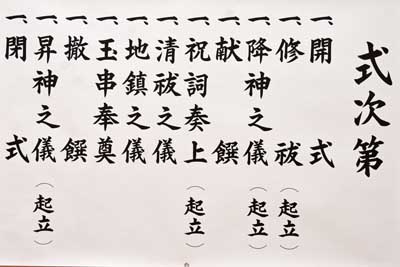 式次第
一、開式
一、修祓（起立）
一、降神之儀（起立）
一、献饌
一、祝詞奏上（起立）
一、清祓之儀
一、地鎮之儀
一、玉串奉奠
一、撤饌
一、昇神之儀（起立）
一、閉式